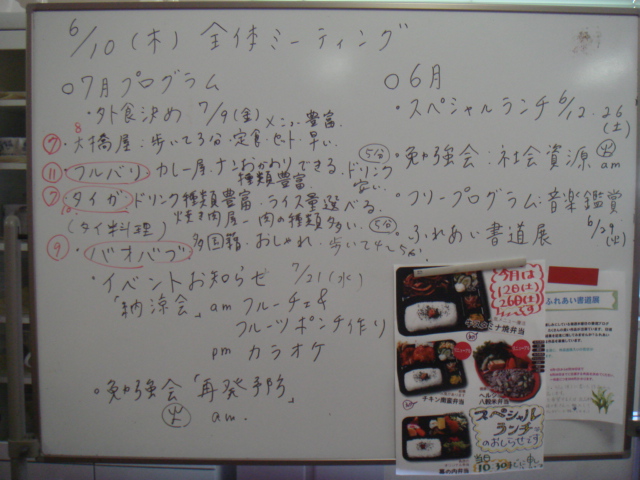 6/10(木) 全体ミーティング
○7月プログラム
・外食決め 7/9(金) メニュー豊富.
8
⑦・大橋屋:歩いて3分・定食・セット・早い
⑪・フルバリ カレー屋・ナンおかわりできる・ドリンク安い
種類豊富
⑦・タイガ ドリンク種類豊富・ライス量選べる.
(タイ料理) 焼き肉屋-肉の種類多い. 5分
⑨・バオバブ 多国籍・おしゃれ・歩いて4〜5分.
・イベントお知らせ 7/21(水)
「納涼会」 am フルーチェ&
フルーツポンチ作り
pm カラオケ
・勉強会「再発予防」
土 am.
○6月
・スペシャルランチ 6/12.26
(土)
5分 ・勉強会:社会資源 土 am
・フリープログラム:音楽鑑賞
・ふれあい書道展 6/29(火)
今月は
12日(土)
26日(土)
です
チキン南蛮弁当
幕の内弁当
スペシャル
ランチ
のおしらせです
当日
10:30
ふれあい書道展